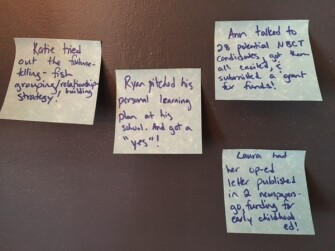 Katie tried
out the future-
telling-fish
grouping/relationship
building
strategy!
Ryan pitched his
personal learning
plan at his
school. And got a
"yes"!
Ann talked to
28 potential NBCT
candidates, got them
all excited, &
submitted a grant
for funds!
Laura had
her op-ed
letter published
in 2 newspapers-
go, funding for
early childhood
ed!